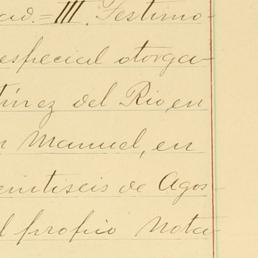 ad.= III. Testimo-
especial otorga
tínez del Rio, en
n Manuel, en
eintiseis de Agos
l propio Nota